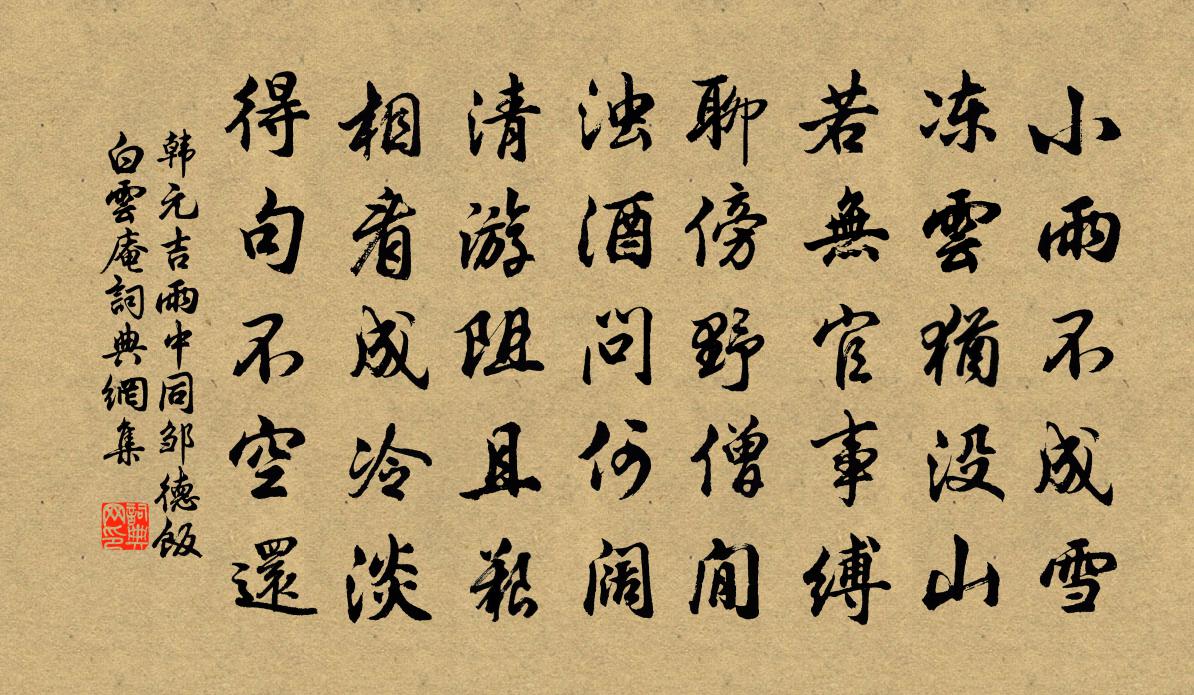 小雨不成雪
冻雲猶没山
若無官事縛
聊傍野僧閒
浊酒问何阔
清游阻且艱
相看成冷淡
得句不空還
韩元吉雨中同邹德飯
白雲庵詞典網集
詞典
网印